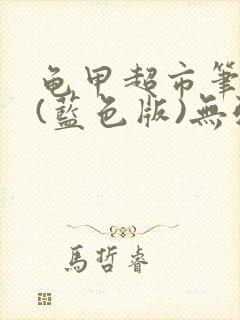 龟甲超市筆
(藍色版)無
馬哲睿